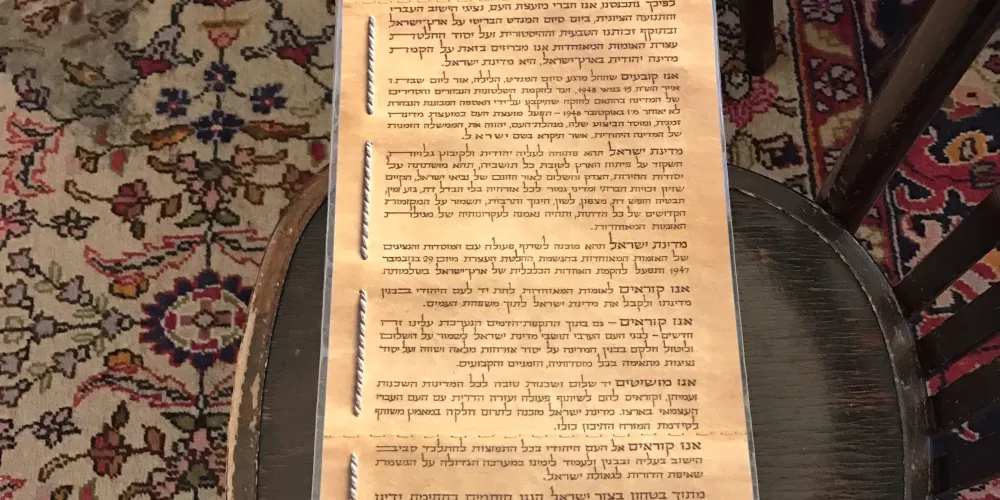 לפיכך נתכנסנו, אנו חברי מועצת העם, נציגי הישוב העברי
והתנועה הציונית, ביום סיום המנדט הבריטי על ארץ-ישראל
ובתוקף זכותנו הטבעית וההיסטורית ועל יסוד החלטת
עצרת האומות המאוחדות אנו מכריזים בזאת על הקמת
מדינה יהודית בארץ-ישראל, היא מדינת ישראל.
אנו קובעים שהחל מרגע סיום המנדט, הלילה, אור ליום שבת ו
אייר תש״ח, 15 במאי 1948, ועד להקמת השלטונות הנבחרים והסדירים
של המדינה בהתאם לחוקה שתיקבע על-ידי האספה המכוננת הנבחרת
לא יאוחר מ-1 באוקטובר 1948 – תפעל מועצת העם כמועצת מדינה
זמנית, ומוסד הביצוע שלה, מנהלת-העם, יהווה את הממשלה הזמנית
של המדינה היהודית, אשר תיקרא בשם ישראל.
מדינת ישראל תהא פתוחה לעליה יהודית ולקיבוץ גלויות;
תשקוד על פיתוח הארץ לטובת כל תושביה; תהא מושתתה על
יסודות החירות, הצדק והשלום לאור חזונם של נביאי ישראל; תקיים
שויון זכויות חברתי ומדיני גמור לכל אזרחיה בלי הבדל דת, גזע ומין;
תבטיח חופש דת, מצפון, לשון, חינוך ותרבות; תשמור על המקומות
הקדושים של כל הדתות; ותהיה נאמנה לעקרונותיה של מגילת
האומות המאוחדות.
מדינת ישראל תהא מוכנה לשתף פעולה עם המוסדות והנציגים
של האומות המאוחדות בהגשמת החלטת העצרת מיום 29 בנובמבר
1947 ותפעל להקמת האחדות הכלכלית של ארץ-ישראל בשלמותה.
אנו קוראים לאומות המאוחדות לתת יד לעם היהודי בבנין
מדינתו ולקבל את מדינת ישראל לתוך משפחת העמים.
אנו קוראים – גם בתוך התקפת-הדמים הנערכת עלינו זה
חדשים – לבני העם הערבי תושבי מדינת ישראל לשמור על השלום
וליטול חלקם בבנין המדינה על יסוד אזרחות מלאה ושווה ועל יסוד
נציגות מתאימה בכל מוסדותיה, הזמניים והקבועים.
אנו מושיטים יד שלום ושכנות טובה לכל המדינות השכנות
ועמיהן, וקוראים להם לשיתוף פעולה ועזרה הדדית עם העם העברי
העצמאי בארצו. מדינת ישראל מוכנה לתרום חלקה במאמץ משותף
לקידמת המזרח התיכון כולו.
אנו קוראים אל העם היהודי בכל התפוצות להתלכד סביב
הישוב בעליה ובבנין ולעמוד לימינו במערכה הגדולה על הגשמת
שאיפת הדורות לגאולת ישראל.
מתוך בטחון בצור ישראל הננו חותמים בחתימת ידינו